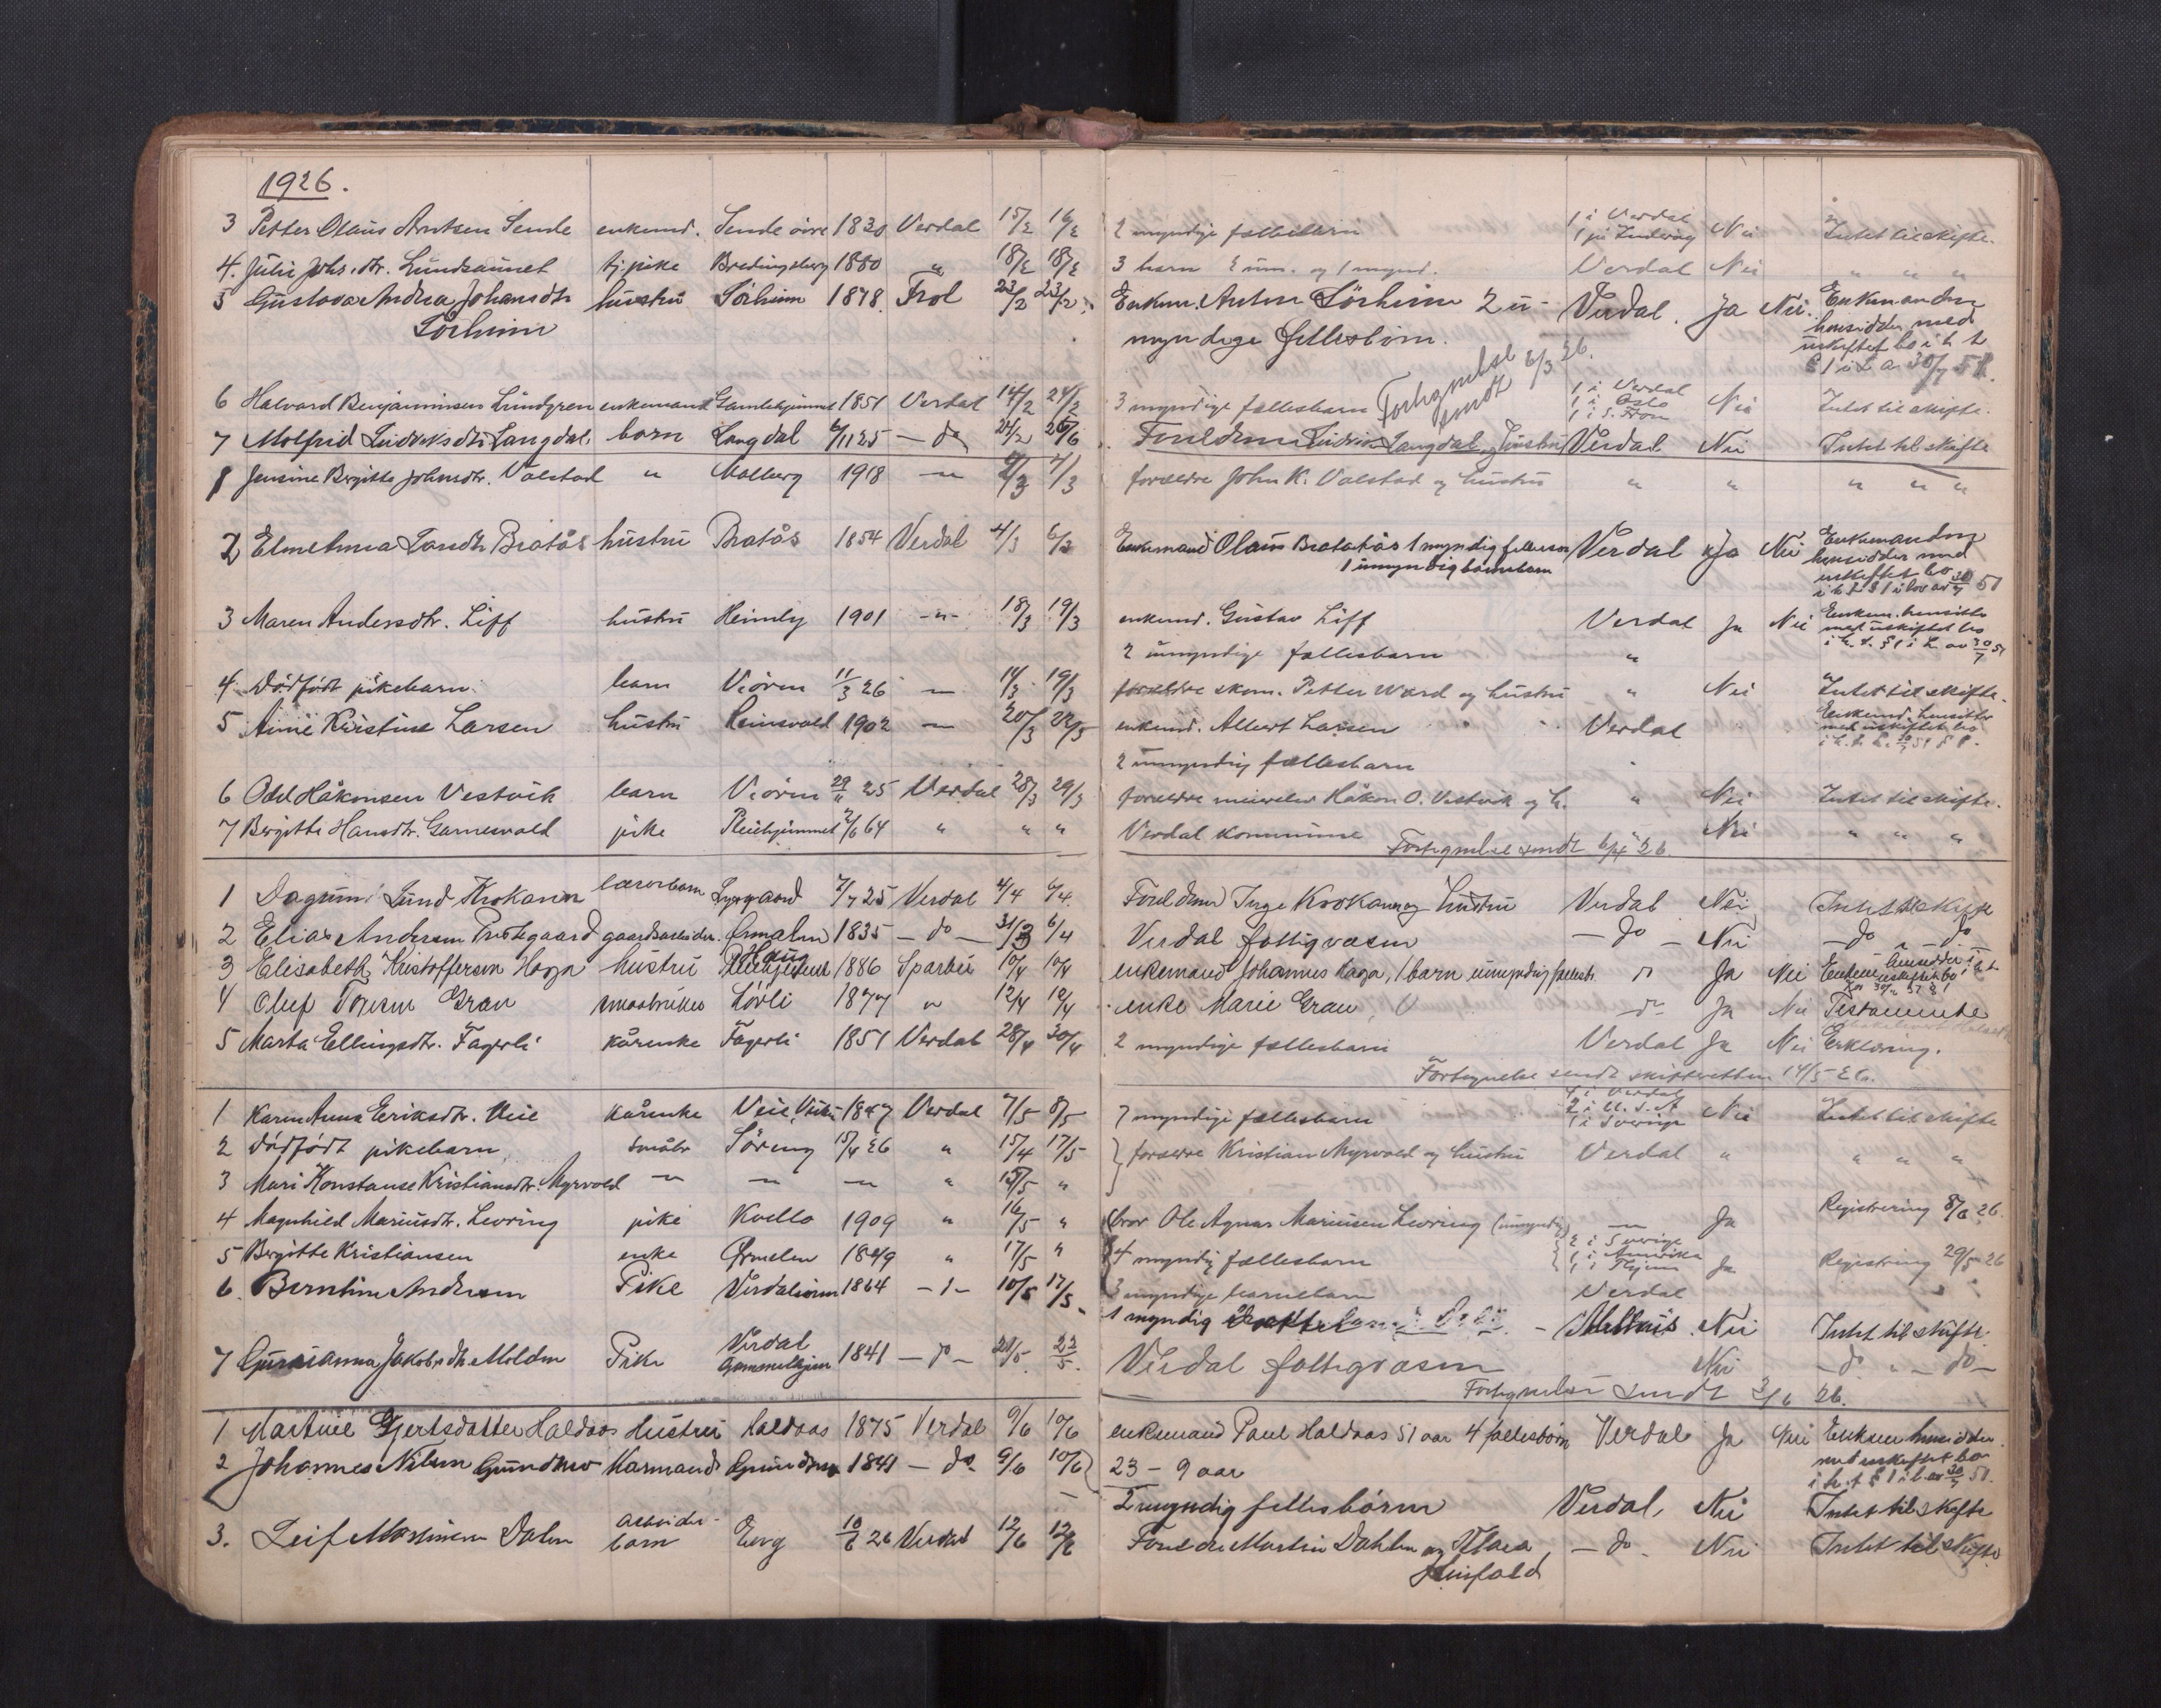 1926.
3 Petter Olaus Arntsen Sende enkemd. Sende övre 1830 Verdal 15/2 16/2 2 myndige fellesbarn 1 i Verdal 1 på Inderøy Nei Intet til skifte.
4. Julie Johs.dtr. Lundsaunet tj.pike Bredingsberg 1880 " 18/2 18/2 3 barn 2 um. og 1 mynd. Verdal Nei " " "
5 Gustava Andrea Johansdtr hustru Sörheim 1878 Frol 23/2 23/2 Enkem. Anton Sörheim 2 u- Verdal. Ja Nei. Enkemanden
Sörheim myndige fellesbörn. hensidder med
uskiftet bo i h t
§ 1 i L a 30/7 51.
Fortegnelse sendt 6/3 26.
6 Halvard Benjaminsen Lundgren enkemand Gamlehjemmet 1851 Verdal 14/2 24/2 3 myndige fellesbarn 1 i Verdal 1 i Oslo 1 i S. Fron Nei Intet til skifte.
7 Molfrid Ludviksdtr Langdal. barn Langdal 6/11 25 — do 24/2 26/6 Foreldrene Ludvik Langdal og Hustru Verdal Nei Intet til skifte
1 Jensine Bergitte Johnsdtr. Valstad " Valberg 1918 — " 2/3 4/3 foreldre John K. Valstad og hustru " " " " "
2 hustru Bratås 1854 Verdal 4/3 6/3 Enkemand Olaus Bratås 1 myndig fellesb Verdal Ja Nei Enkemanden
1 umyndig barnebarn hensidder med
uskiftet bo
i h t § 1 i lov av 30/7 51
3 Maren Andersdtr. Liff hustru Heimly 1901 -"- 18/3 19/3 enkemd. Gustav Liff Verdal Ja Nei Enkem. hensitter
med uskiftet bo
2 umyndige fellesbarn " i h. t. § 1 i L. av 30/7 51
4. Dødfödt pikebarn. barn Viören 11/3 26 — 11/3 19/3 foreldre skom. Petter Ward og hustru " Nei Intet til skifte.
5 Kristine Larsen hustru Leinsvald 1902 — 20/3 22/3 enkemd. Albert Larsen Verdal Enkemd. hensitter
med uskiftet bo
2 umyndig fellesbarn
6 Odd Håkonsen Vestvik barn Viören 29/11 25 Verdal 28/3 29/3 foreldre Håkon O. Vestvik og h. " Nei Intet til skifte.
7 Bergitte Hansdtr. Garnesvold pike Pleiehjemmet 2/6 64 " " " Verdal kommune Nei " " "
Fortegnelse sendt 6/4 26.
1 Dagrun Lund Krokann lærerbarn Lysgaard 2/7 25 Verdal 4/4 6/4. Foreldrene Inge Krokann og Hustru Verdal Nei Intet til skifte
2 Elias Andersen Prestegaard gaardsarbeider. Ørmelen 1835 — do — 31/3 6/4 Verdal fattigvæsen — do — Nei — do — do
3 Elisabeth Kristoffersen Haga hustru Haug 1886 Sparbu 10/4 10/4 enkemand Johannes Haga, 1 barn umyndig fellesb. " Ja Nei
4 Oluf Grav smaabruker Lövli 1877 " 12/4 12/4 enke Marie Grav, — " — Ja Nei Testamente
5 Marta Ellingsdtr. Fagerli kårenke Fagerli 1851 Verdal 28/4 30/4 2 myndige fellesbarn Verdal Ja Nei Erklæring.
Fortegnelse sendt skifteretten 14/5 26.
1 Karen Anna Eriksdtr. Veie kårenke Veie, 1847 Verdal 7/5 8/5 7 myndige fellesbarn 4 i Verdal 2 i U.S.A 1 i Sverige Nei Intet til skifte
2 dødfödt pikebarn, småbr Söreng 15/4 26 " 15/4 17/5 foreldre Kristian Myrvold og hustru Verdal " " " "
3 Mari Konstanse Kristiansdtr. Myrvold — " — — " — — " — " 15/5 "
4 Magnhild Mariusdtr. Levring pike Kvello 1909 " 16/5 " bror Ole Agnar Mariusen Levring (umyndig) — " — Ja Registrering 8/6 26.
5 Bergitte Kristiansen enke Ørmelen 1849 " 17/5 " 4 myndig fellesbarn 2 i Sverige 1 i Amerika 1 i Hjem Ja Registrering 29/5 26
6. Berntine Andersen Pike Verdalsören 1864 — " — 10/5 17/5 3 myndige barnebarn Verdal
1 myndig Nei Intet til skifte.
7 Jakobsdtr Molden Pike Verdal Gammelhjem 1841 — do — 20/5 22/5. Verdal fattigvæsen Nei — do — do —
Fortegnelse sendt 3/6 26.
1 Martine Gjertsdatter Haldaas Hustru Haldaas 1875 Verdal 9/6 10/6 enkemand Paul Haldaas 51 aar 4 fellesbörn Verdal Ja Nei Enkem hensidder
med uskiftet bo
2 Johannes Nilsen Karmand 1841 — do 9/6 10/6 23 – 9 aar i h. t § 1 i l. av 30/7 51.
2 myndig fellesbörn Verdal, Nei Intet til skifte
3. Leif Dalen arbeider-
barn Berg 10/6 26 Verdal 12/6 12/6 Foreldre Martin Dahlen og — do - Nei Intet til skifte